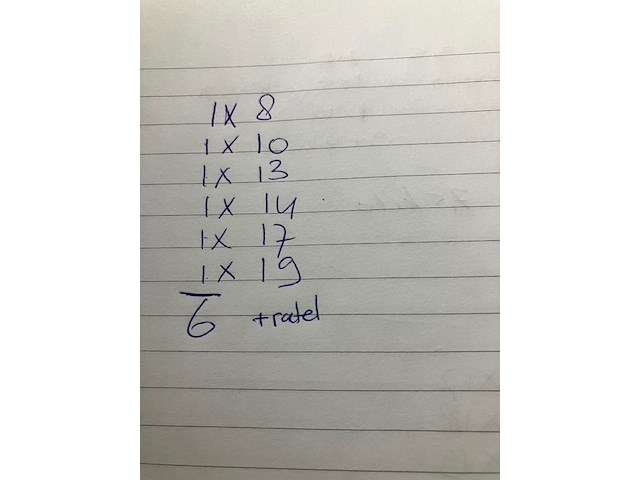 1x 8
1x 10
1x 13
1x 14
1x 17
1x 19
6 +ratel